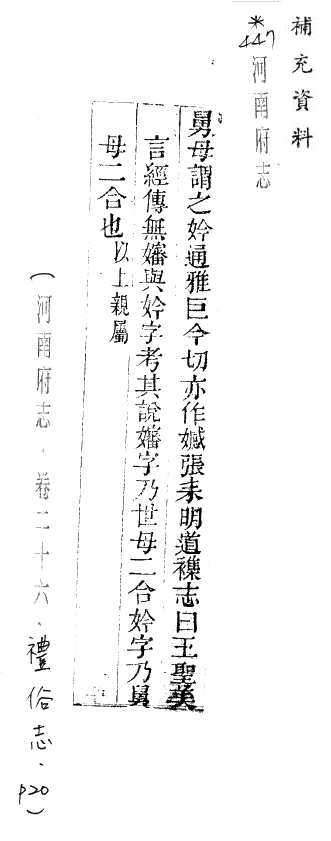 補充資料
*447 河南府志
舅母謂之妗通雅巨今切亦作㜝張耒明道襍志曰王聖美
言經傳無嬸與妗字考其說嬸字乃世母二合妗字乃舅
母二合也以上親屬
(河南府志．卷二十六．禮俗志．p20)